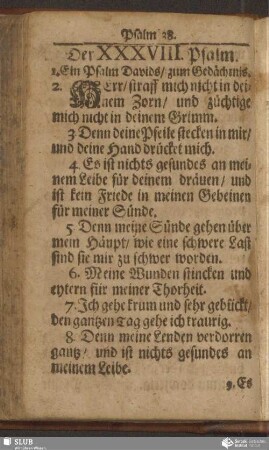 Psalm 38.
Der XXXVIII. Psalm.
1. Ein Psalm Davids/ zum Gedächtniß.
2. HErr/ straff mich nicht in dei-
nem Zorn/ und züchtige
mich nicht in deinem Grimm.
3 Denn deine Pfeile stecken in mir/
und deine Hand drücket mich.
4. Es ist nichts gesundes an mei-
nem Leibe für deinem dräuen/ und
ist kein Friede in meinen Gebeinen
für meiner Sünde.
5 Denn meine Sünde gehen über
mein Häupt/ wie eine schwere Last
sind sie mir zu schwer worden.
6. Meine Wunden stincken und
eytern für meiner Thorheit.
7. Ich gehe krum und sehr gebückt/
den gantzen Tag gehe ich traurig.
8 Denn meine Lenden verdorren
gantz/ und ist nichts gesundes an
meinem Leibe.
9. Es
SLUB